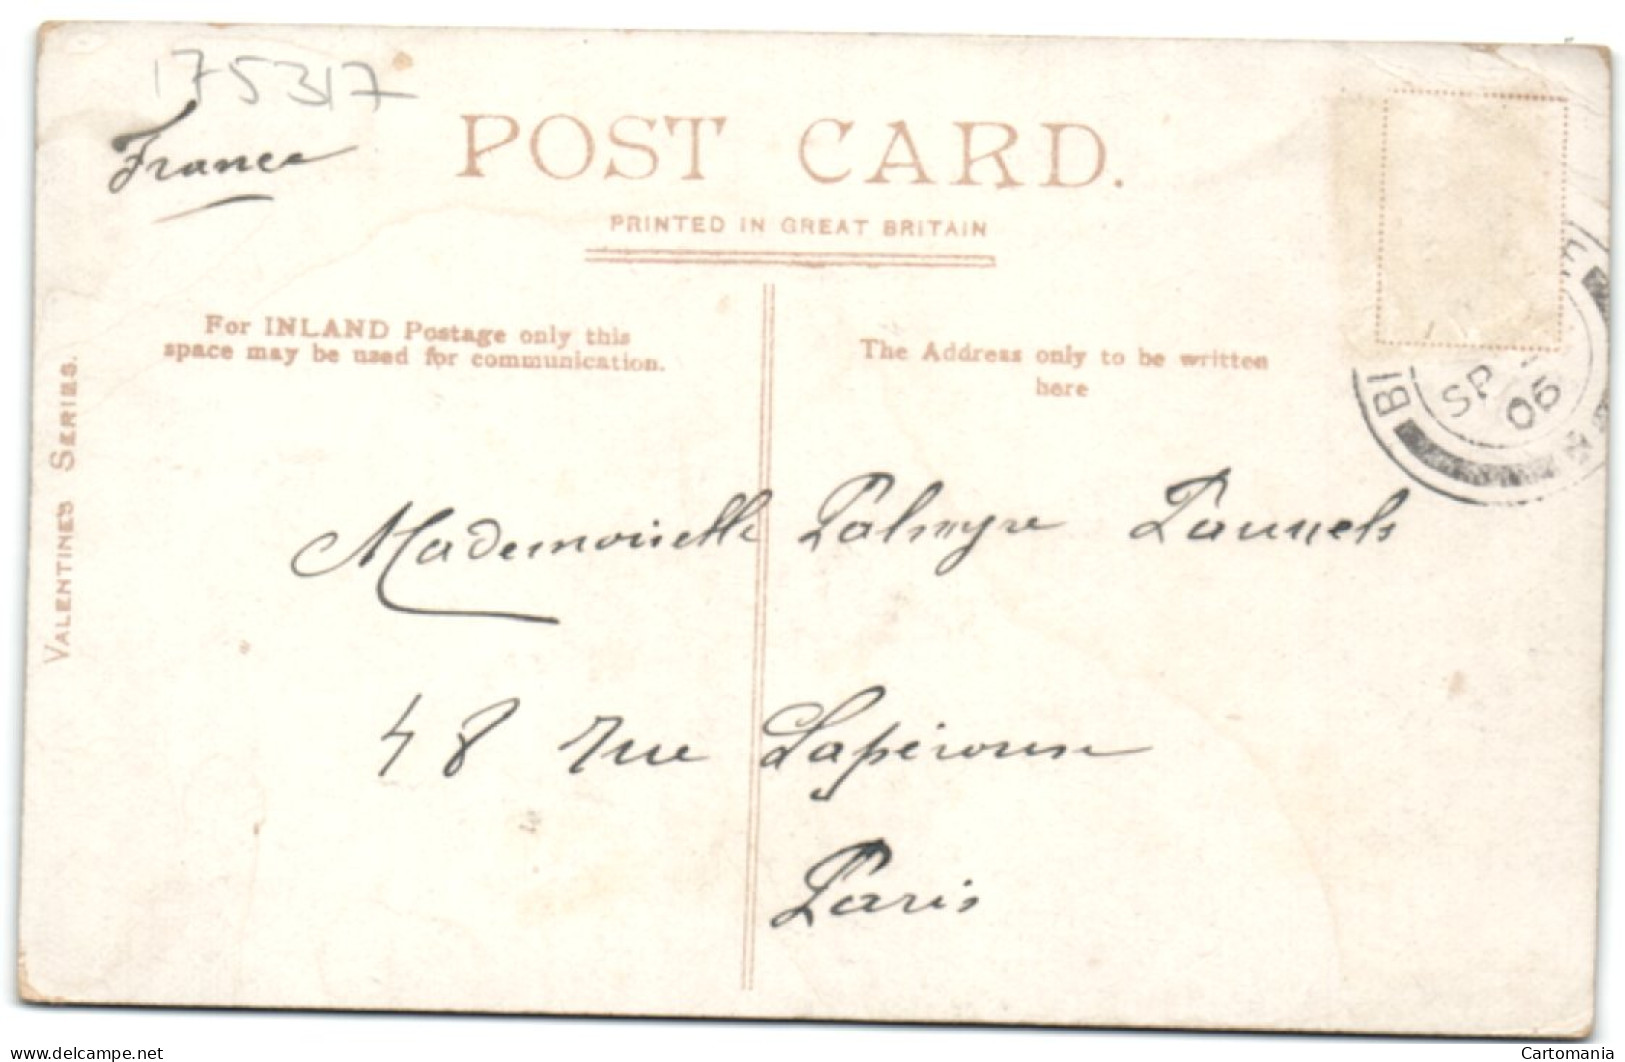 175317
France
POST CARD.
PRINTED IN GREAT BRITAIN
For INLAND Postage only this
space may be used for communication.
The Address only to be written
here
VALENTINES SERIES.
BI
SP
05
Mademoiselle Palmyre Pauwels
48 rue Lapérouse
Paris
delcampe.net
Cartomania